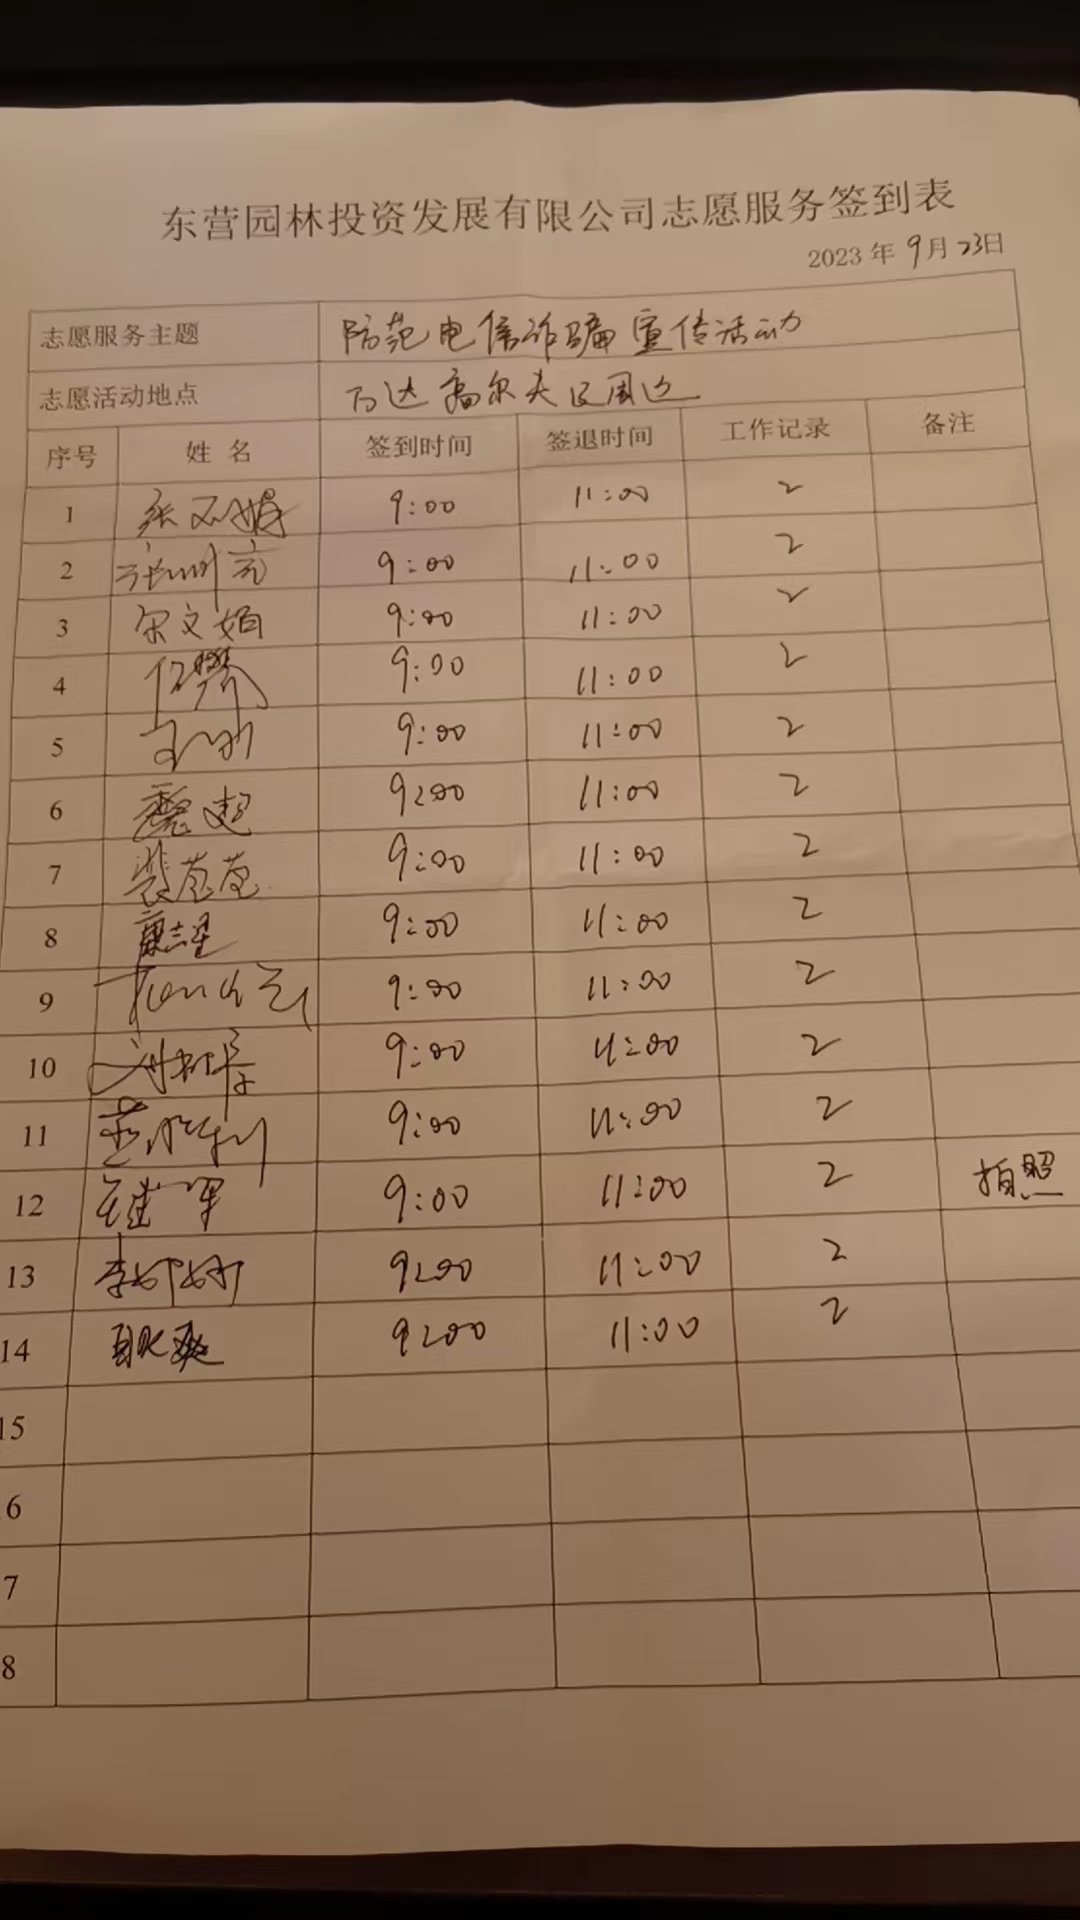 东营园林投资发展有限公司志愿服务签到表
2023 年 9 月 23 日
志愿服务主题 防范电信诈骗宣传活动
志愿活动地点 万达高尔夫及周边
序号 姓名 签到时间 签退时间 工作记录 备注
1 9:00 11:00 2
2 9:00 11:00 2
3 宋文娟 9:00 11:00 2
4 任攀 9:00 11:00 2
5 9:00 11:00 2
6 超 9:00 11:00 2
7 裴苍苍 9:00 11:00 2
8 9:00 11:00 2
9 9:00 11:00 2
10 9:00 11:00 2
11 9:00 11:00 2
12 9:00 11:00 2 拍照
13 李婷婷 9:00 11:00 2
14 耿爽 9:00 11:00 2
15
6
7
8